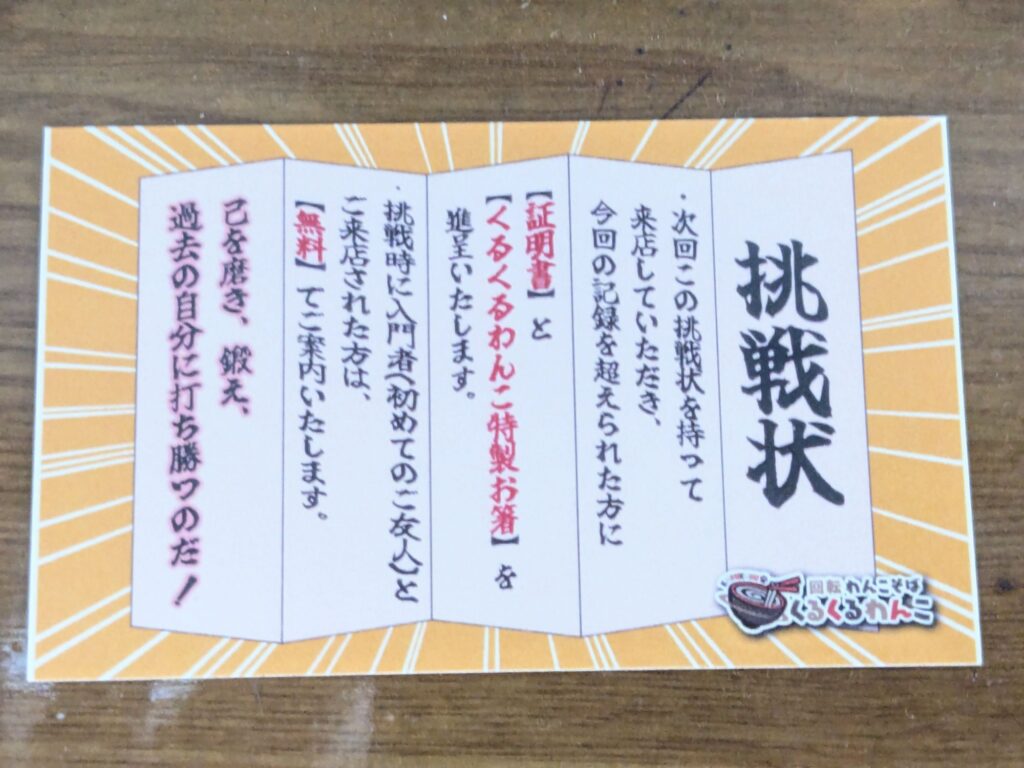 挑戦状
・次回この挑戦状を持って
来店していただき、
今回の記録を超えられた方に
【証明書】と
【くるくるわんこ特製お箸】を
進呈いたします。
・挑戦時に入門者(初めてのご友人)と
ご来店された方は、
【無料】でご案内いたします。
己を磨き、鍛え、
過去の自分に打ち勝つのだ!
回転わんこそば
くるくるわんこ